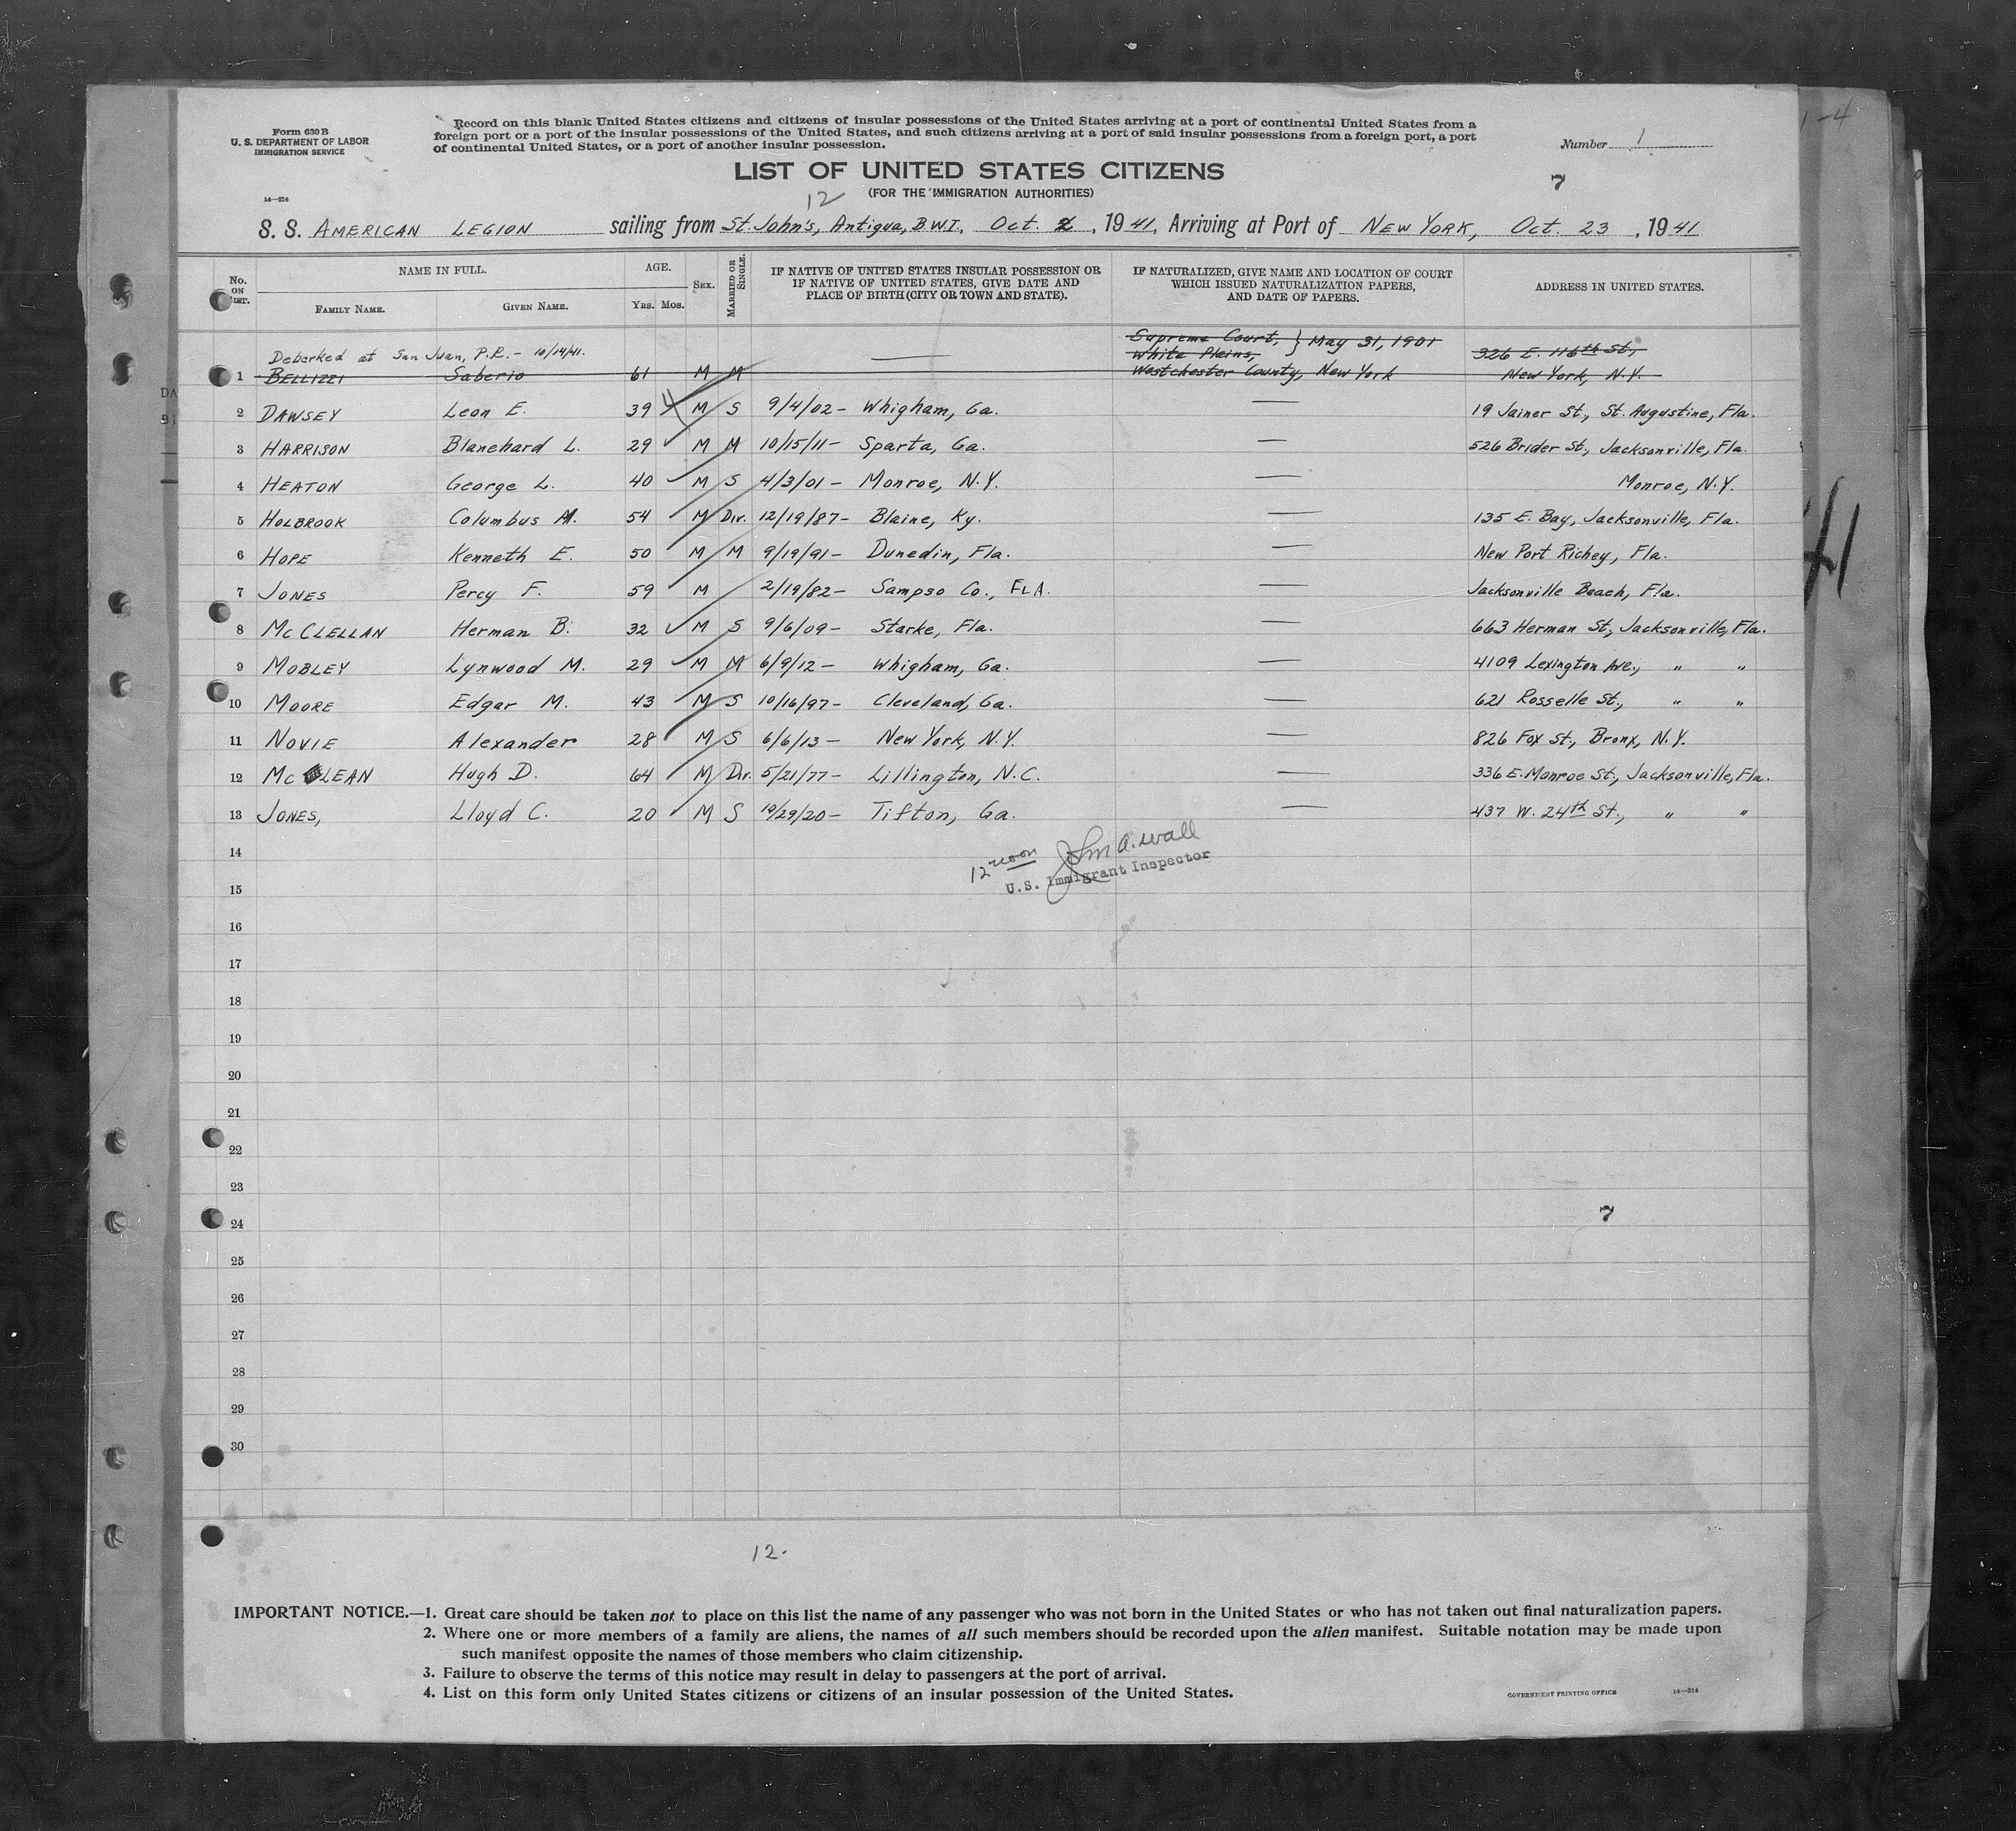 Form 630 B
U. S. DEPARTMENT OF LABOR
IMMIGRATION SERVICE
14—214
Record on this blank United States citizens and citizens of insular possessions of the United States arriving at a port of continental United States from a
foreign port or a port of the insular possessions of the United States, and such citizens arriving at a port of said insular possessions from a foreign port, a port
of continental United States, or a port of another insular possession.
Number 1
1-4
LIST OF UNITED STATES CITIZENS
(FOR THE IMMIGRATION AUTHORITIES)
7
12
S. S. AMERICAN LEGION sailing from St. John's, Antigua, B.W.I., Oct. 2, 1941, Arriving at Port of NEW YORK, Oct. 23, 1941
No. ON LIST. NAME IN FULL. FAMILY NAME. GIVEN NAME. AGE. YRS. MOS. SEX. MARRIED OR SINGLE. IF NATIVE OF UNITED STATES INSULAR POSSESSION OR IF NATIVE OF UNITED STATES, GIVE DATE AND PLACE OF BIRTH (CITY OR TOWN AND STATE). IF NATURALIZED, GIVE NAME AND LOCATION OF COURT WHICH ISSUED NATURALIZATION PAPERS, AND DATE OF PAPERS. ADDRESS IN UNITED STATES.
Debarked at San Juan, P.R. - 10/14/41.
1 BELLIZZI Saberio 61 M M — Supreme Court, White Plains, } May 31, 1901 Westchester County, New York 326 E. 116th St., New York, N.Y.
2 DAWSEY Leon E. 39 M S 9/4/02 - Whigham, Ga. — 19 Jainer St., St. Augustine, Fla.
3 HARRISON Blanchard L. 29 M M 10/15/11 - Sparta, Ga. — 526 Brider St., Jacksonville, Fla.
4 HEATON George L. 40 M S 4/3/01 - Monroe, N.Y. — Monroe, N.Y.
5 HOLBROOK Columbus M. 54 M Div. 12/19/87 - Blaine, Ky. — 135 E. Bay, Jacksonville, Fla.
6 HOPE Kenneth E. 50 M M 9/19/91 - Dunedin, Fla. — New Port Richey, Fla.
7 JONES Percy F. 59 M 2/19/82 - Sampso Co., FLA. — Jacksonville Beach, Fla.
8 MCCLELLAN Herman B. 32 M S 9/6/09 - Starke, Fla. — 663 Herman St., Jacksonville, Fla.
9 MOBLEY Lynwood M. 29 M M 6/9/12 - Whigham, Ga. — 4109 Lexington Ave., " "
10 MOORE Edgar M. 43 M S 10/16/97 - Cleveland, Ga. — 621 Rosselle St., " "
11 NOVIE Alexander 28 M S 6/6/13 - New York, N.Y. — 826 Fox St., Bronx, N.Y.
12 MC LEAN Hugh D. 64 M Div. 5/21/77 - Lillington, N.C. — 336 E. Monroe St., Jacksonville, Fla.
13 JONES, Lloyd C. 20 M S 10/29/20 - Tifton, Ga. — 437 W. 24th St., " "
14
12 noon A. Wall
U.S. Immigrant Inspector
15
16
17
18
19
20
21
22
23
7
24
25
26
27
28
29
30
12.
IMPORTANT NOTICE.—1. Great care should be taken not to place on this list the name of any passenger who was not born in the United States or who has not taken out final naturalization papers.
2. Where one or more members of a family are aliens, the names of all such members should be recorded upon the alien manifest. Suitable notation may be made upon
such manifest opposite the names of those members who claim citizenship.
3. Failure to observe the terms of this notice may result in delay to passengers at the port of arrival.
4. List on this form only United States citizens or citizens of an insular possession of the United States.
GOVERNMENT PRINTING OFFICE 14—214